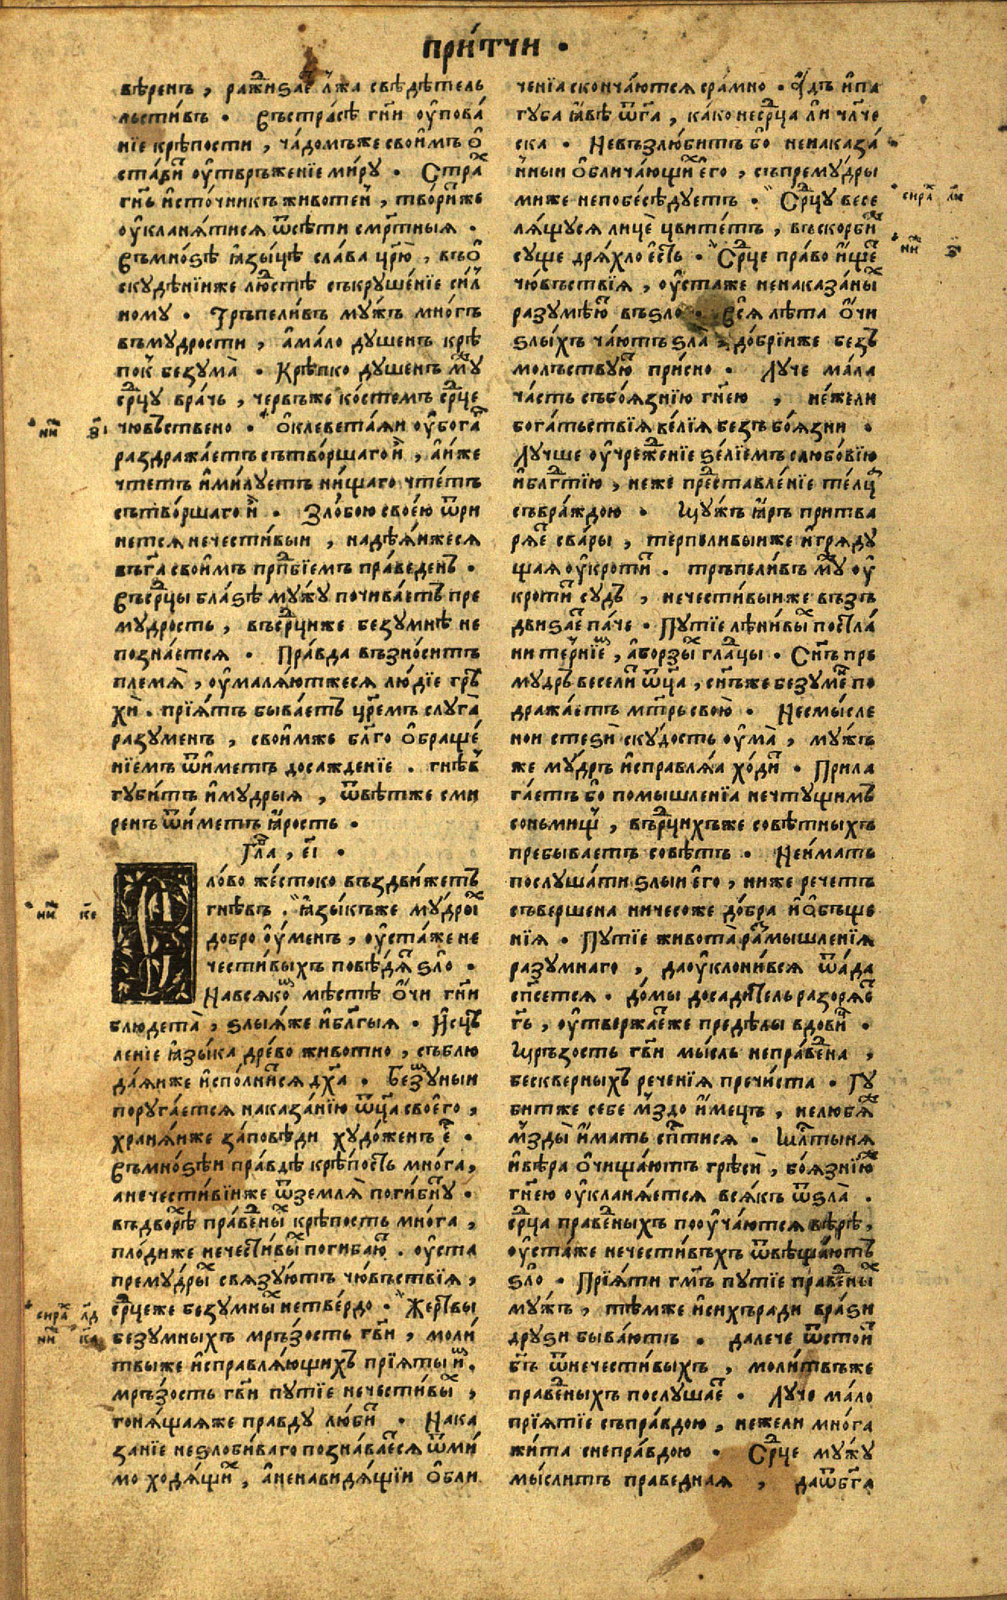 при́тчи ·
вѣренъ, ражи́заетъ лжа свѣдѣтель
льсти́въ · Въстра́сѣ гн҃и оу҆пова́
нїе крѣпости, ча́домъже свои҆мъ о҆
ста́ви оу҆твръже́нїе ми́ру · Стра́
гн҃ь и҆сто́чникъ животе́н, твори́же
оу҆кланѧ́тисѧ ѿсѣти см҃ртныѧ ·
Въмно́зѣ ꙗ҆зы́цѣ сла́ва цр҃ю, въо҆
скудѣ́нїиже лю́стѣ съкруше́нїе сил
ному · Тръпели́въ му́жъ мно́гъ
въмудрости, а҆ма́ло душенъ крѣ
покъ безума̀ · Крѣпко душенъ мужу
ср҃цу вра́чь, червъже ко́стемъ ср҃це
чю́въствено · О҆клевета́ѧи оу҆бога
раздража́етъ сътво́ршаго и҆, а҆и́же
чтетъ и҆ми́луетъ ни́щаго чте́тъ
сътво́ршаго и҆ · Зло́бою свое́ю ѿри
нетсѧ нечести́выи, надѣѧ́ижесѧ
въга свои҆мъ прп҃бїемъ пра́веденъ ·
Въср҃цы бла́зѣ му́жу почива́етъ пре
му́дрость, въср҃циже безу́мнѣ не
позна́етсѧ · Пра́вда възно́ситъ
племѧ̀, оу҆малѧ́ютжесѧ лю́дїе грѣ
хи · прїѧ́тъ быва́етъ цр҃емъ слуга̀
разуменъ, свои́мже бл҃го о҆браще́
нїемъ ѿи́метъ досажденїе · гнѣвъ
губи́тъ и҆му́дрыѧ, ѿвѣтже сми
ренъ ѿи́метъ ꙗ҆рость ·
Гла, е҃і ·
Сло́во же́стоко въздви́жетъ
гнѣвъ · ꙗ҆зы́къже мудрои
добро оу҆менъ, оу҆ста́же не
чести́выхъ повѣ́дѧ ѕло ·
Навсѧко мѣстѣ о҆чи гн҃и
блюдета̀, ѕлы́ѧже и҆бл҃гыѧ · И҆сцѣ
ленїе ꙗ҆зы́ка дре́во животно, съблю
да́ѧиже и҆спо́лнисѧ дх҃а · Безуныи
поруга́етсѧ наказа́нїю ѿц҃а своего̀,
хранѧ́иже за́повѣди худо́женъ е҆ ·
Въмно́зѣи пра́вдѣ крѣпость мно́га,
анечести́вїиже ѿземлѧ̀ поги́бну ·
въдво́рѣ праве́ны крѣпость мно́га,
пло́диже нечести́вы погиба́ю · оу҆ста
прему́дры свѧзу́ютъ чю́въствїѧ,
ср҃цеже безумны нетве́рдо · Же́ртвы
безумныхъ мръ́зость гв҃и, моли́
твыже и҆справлѧ́ющихъ прїѧты и҆м.
мръ́зость гв҃и путїе нечести́вы,
гонѧ́щаѧже правду люби · Нака
за́нїе незлоби́ваго познава́есѧ ѿми́
мо ходѧ́щи, а҆ненавидѧ́щїи о҆бли
че́нїѧ сконча́ютсѧ сра́мно · А҆дъ и҆па
губа ꙗ҆вѣ ѿга, ка́ко неср҃ца ли чл҃че
ска · Невъзлю́битъ бо ненаказа́
нныи о҆блича́ющи его̀, съпрему́дры
миже непобесѣ́дуетъ · Ср҃цу весе
лѧ́щусѧ лицѐ цвите́тъ, въскорби
суще дрѧ́хло е҆сть · Ср҃це пра́во и҆ще
чю́въствїѧ, оу҆ста́же ненаказа́ны
разумѣю въѕло · Всѧ лѣ́та о҆чи
ѕлы́хъ ча́ютъ ѕла̀, до́брїиже безъ
молъствую при́сно · Лу́че ма́ла
ча́сть събоѧзнїю гн҃ею, не́жели
бога́тьствїѧ ве́лїѧ безъ боѧ́зни ·
Лу́чше оу҆чреже́нїе зе́лїемъ слюбо́вїю
и҆блг҃тїю, неже преставле́нїе тельц
съвра́ждою · Му́жъ ꙗ҆ръ притва
рѧе сва́ры, терпели́выиже и҆грѧду
щаѧ оу҆кроти · тръпели́въ му оу҆
кроти су́дъ, нечести́выиже възъ
дви́зае па́че · Путїе лѣни́вы посла́
ни те́рнїе, а҆борзы гладцы · Сн҃ъ пре
му́дръ весели ѿц҃а, сн҃ъже безуме по
дража́етъ мт҃рь свою̀ · Несмы́сле
нои стези ску́дость оу҆ма̀, му́жъ
же му́дръ и҆справлѧ́ѧ хо́ди · Прила
га́етъ бо помышле́нїѧ нечту́щимъ
соньмищ, въср҃цихъже совѣ́тныхъ
пребыва́етъ совѣ́тъ · Неи́мать
послу́шати ѕлы́и е҆го, ниже рече́тъ
съвершена ничесоже до́бра и҆о҆бъще
нїѧ · Путїе живота̀ размышле́нїѧ
разу́мнаго, даоу҆клони́всѧ ѿа́да
спсе́тсѧ · до́мы досади́тель разорѧе
гь, оу҆тверждаеже предѣ́лы вдови ·
Мръзость гв҃и мысль непра́ведна,
бескве́рныхъ рече́нїѧ пречи́ста · Гу
битже себе мъздо и҆мецъ, нелюбѧ
мъзды и҆мать спстисѧ · Млтынѧ
и҆вѣ́ра о҆чища́ютъ грѣси, боѧ́знїю
гн҃ею оу҆кланѧ́етсѧ всѧкъ ѿѕла̀ ·
ср҃ца праве́ныхъ пооу҆ча́ютсѧ вѣрѣ,
оу҆ста́же нечести́въхъ ѿвѣща́ютъ
ѕло̀ · Прїѧти гмъ путїе праве́ны
му́жъ, тѣмже и҆сихъради врази
друзи быва́ютъ · далече ѿстои
бг҃ъ ѿнечести́выхъ, моли́твъже
праве́ныхъ послуша́е · Лу́че ма́ло
прїѧ́тїе съпра́вдою, нежели мно́га
жи́та снепра́вдою · Ср҃це му́жу
мы́слитъ пра́веднаѧ, даѿбг҃а